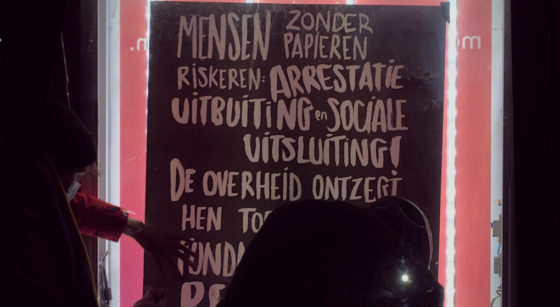 MENSEN ZONDER
PAPIEREN
RISKEREN: ARRESTATIE
UITBUITING en SOCIALE
UITSLUITING!
DE OVERHEID ONTZEGT
HEN